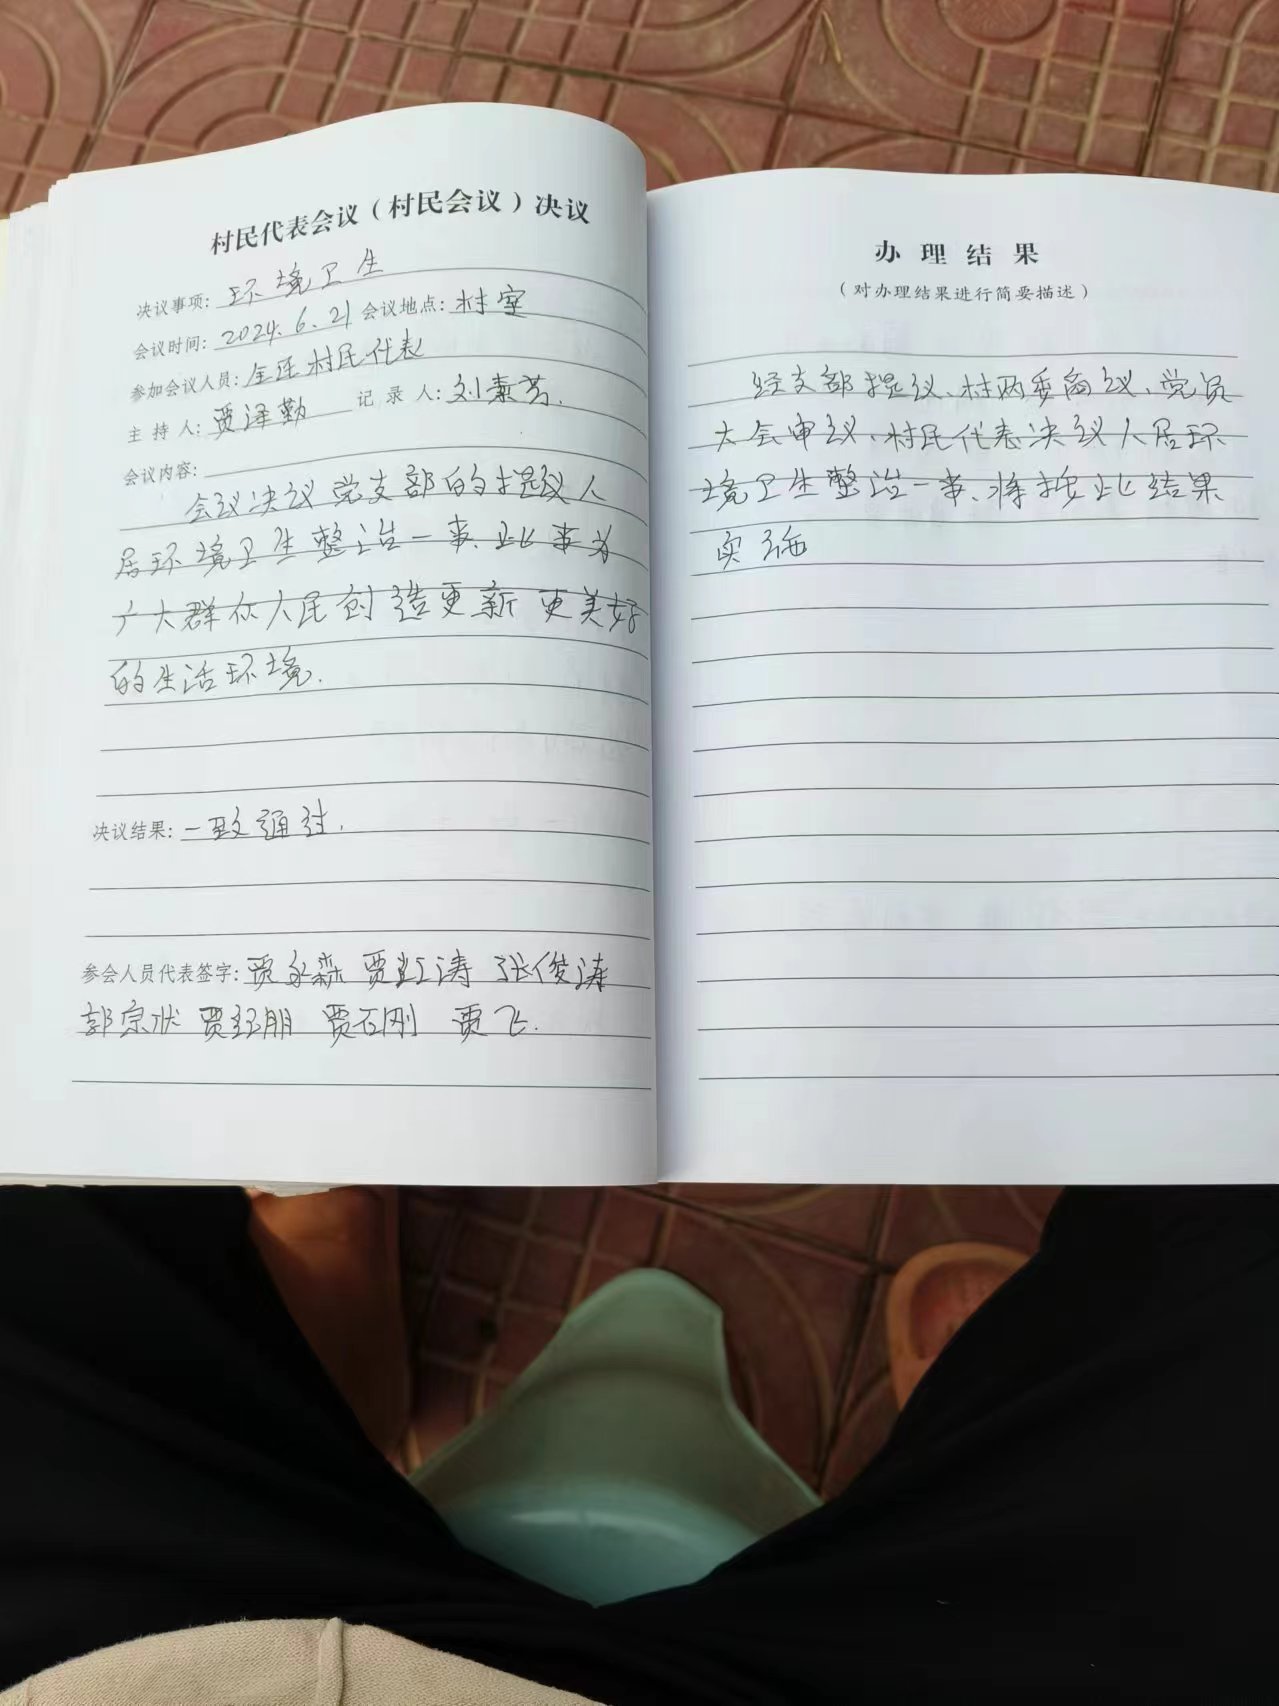 村民代表会议（村民会议）决议
决议事项: 环境卫生
会议时间: 2024.6.21 会议地点: 村室
参加会议人员: 全体村民代表
主持人: 贾泽勤 记录人: 刘素芳.
会议内容:
会议决议党支部的提议人
居环境卫生整治一事、此事为
广大群众人民创造更新更美好
的生活环境.
决议结果: 一致通过.
参会人员代表签字: 贾永森 贾红涛 张俊涛
郭宗状 贾红朋 贾石刚 贾飞.
办理结果
（对办理结果进行简要描述）
经支部提议、村两委商议、党员
大会审议、村民代表决议人居环
境卫生整治一事、将按此结果
实施